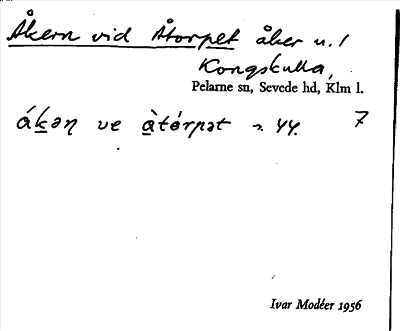 Åkern vid Åtorpet åker u. /
Kongskulla,
Pelarne sn, Sevede hd, Klm l.
ákəη ve àtórpət 44. 7
Ivar Modéer 1956